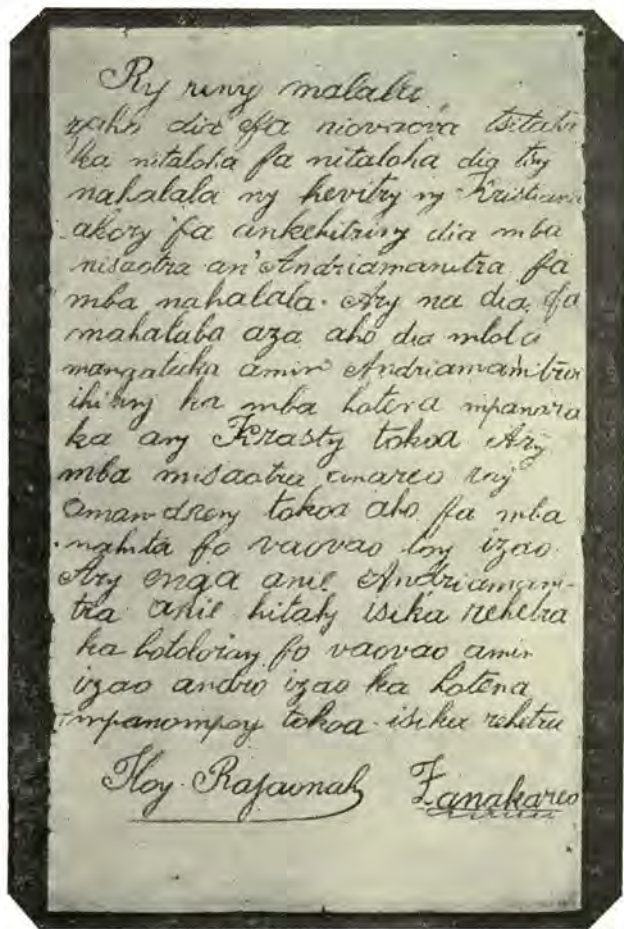 Ry reny malala
zaho dia efa niovaova tsitahi
ka nitaloha fa nitaloha dia tsy
nahalala ny hevitry ny Kristiana
akory fa ankehitriny dia mba
nisaotra an'Andriamanitra fa
mba nahalala. Ary na dia efa
mahalaba aza aho dia mbola
mangataka amin' Andriamanitra
ihiany ka mba hotena mpanara
ka any Krasty tokoa Ary
mba misaotra anareo ray
aman-dreny tokoa aho fa mba
nahita fo vaovao toy izao.
Ary enga anie Andriamani-
tra anie hitahy isika rehetra
ka hotoloiany fo vaovao amin
izao andro izao ka hotena
mpanompoy tokoa isika rehetra
Hoy Rafaonah Zanakareo